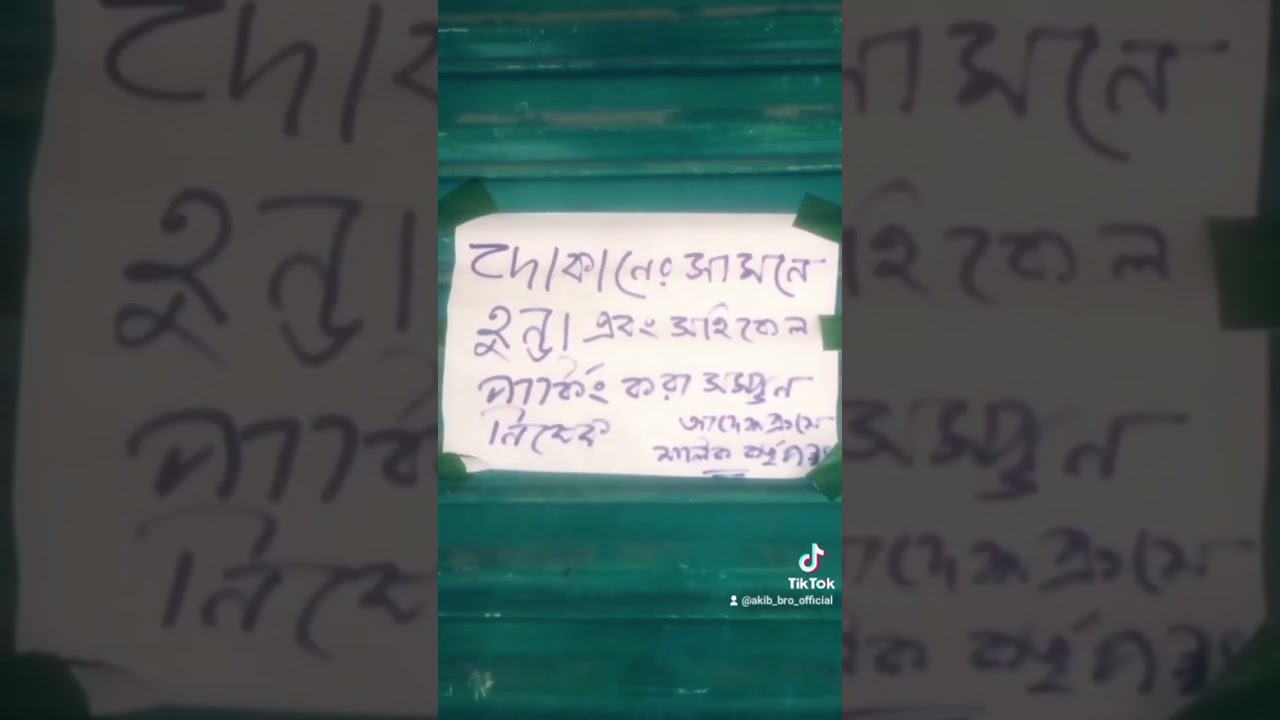 দোকানের সামনে
হুন্ডা এবং সাইকেল
পার্কিং করা সম্পুন
নিষেধ
আদেশক্রমে
মালিক কর্তৃপক্ষ
TikTok
@akib_bro_official